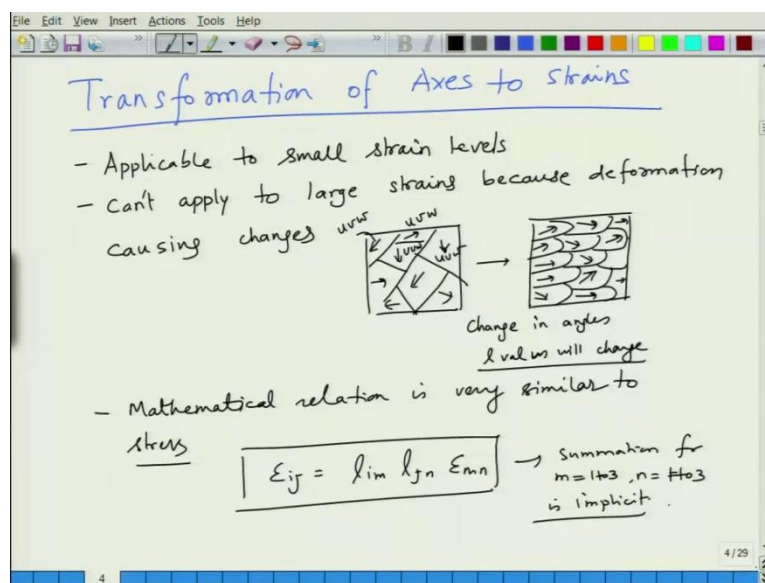 File Edit View Insert Actions Tools Help
B I
Transformation of Axes to strains
- Applicable to small strain levels
- Can't apply to large strains because deformation
causing changes
uvw uvw
uvw uvw
Change in angles
l values will change
- Mathematical relation is very similar to
stress
εij = lim ljn εmn → Summation for
m = 1 to 3, n = 1 to 3
is implicit.
4/29
4